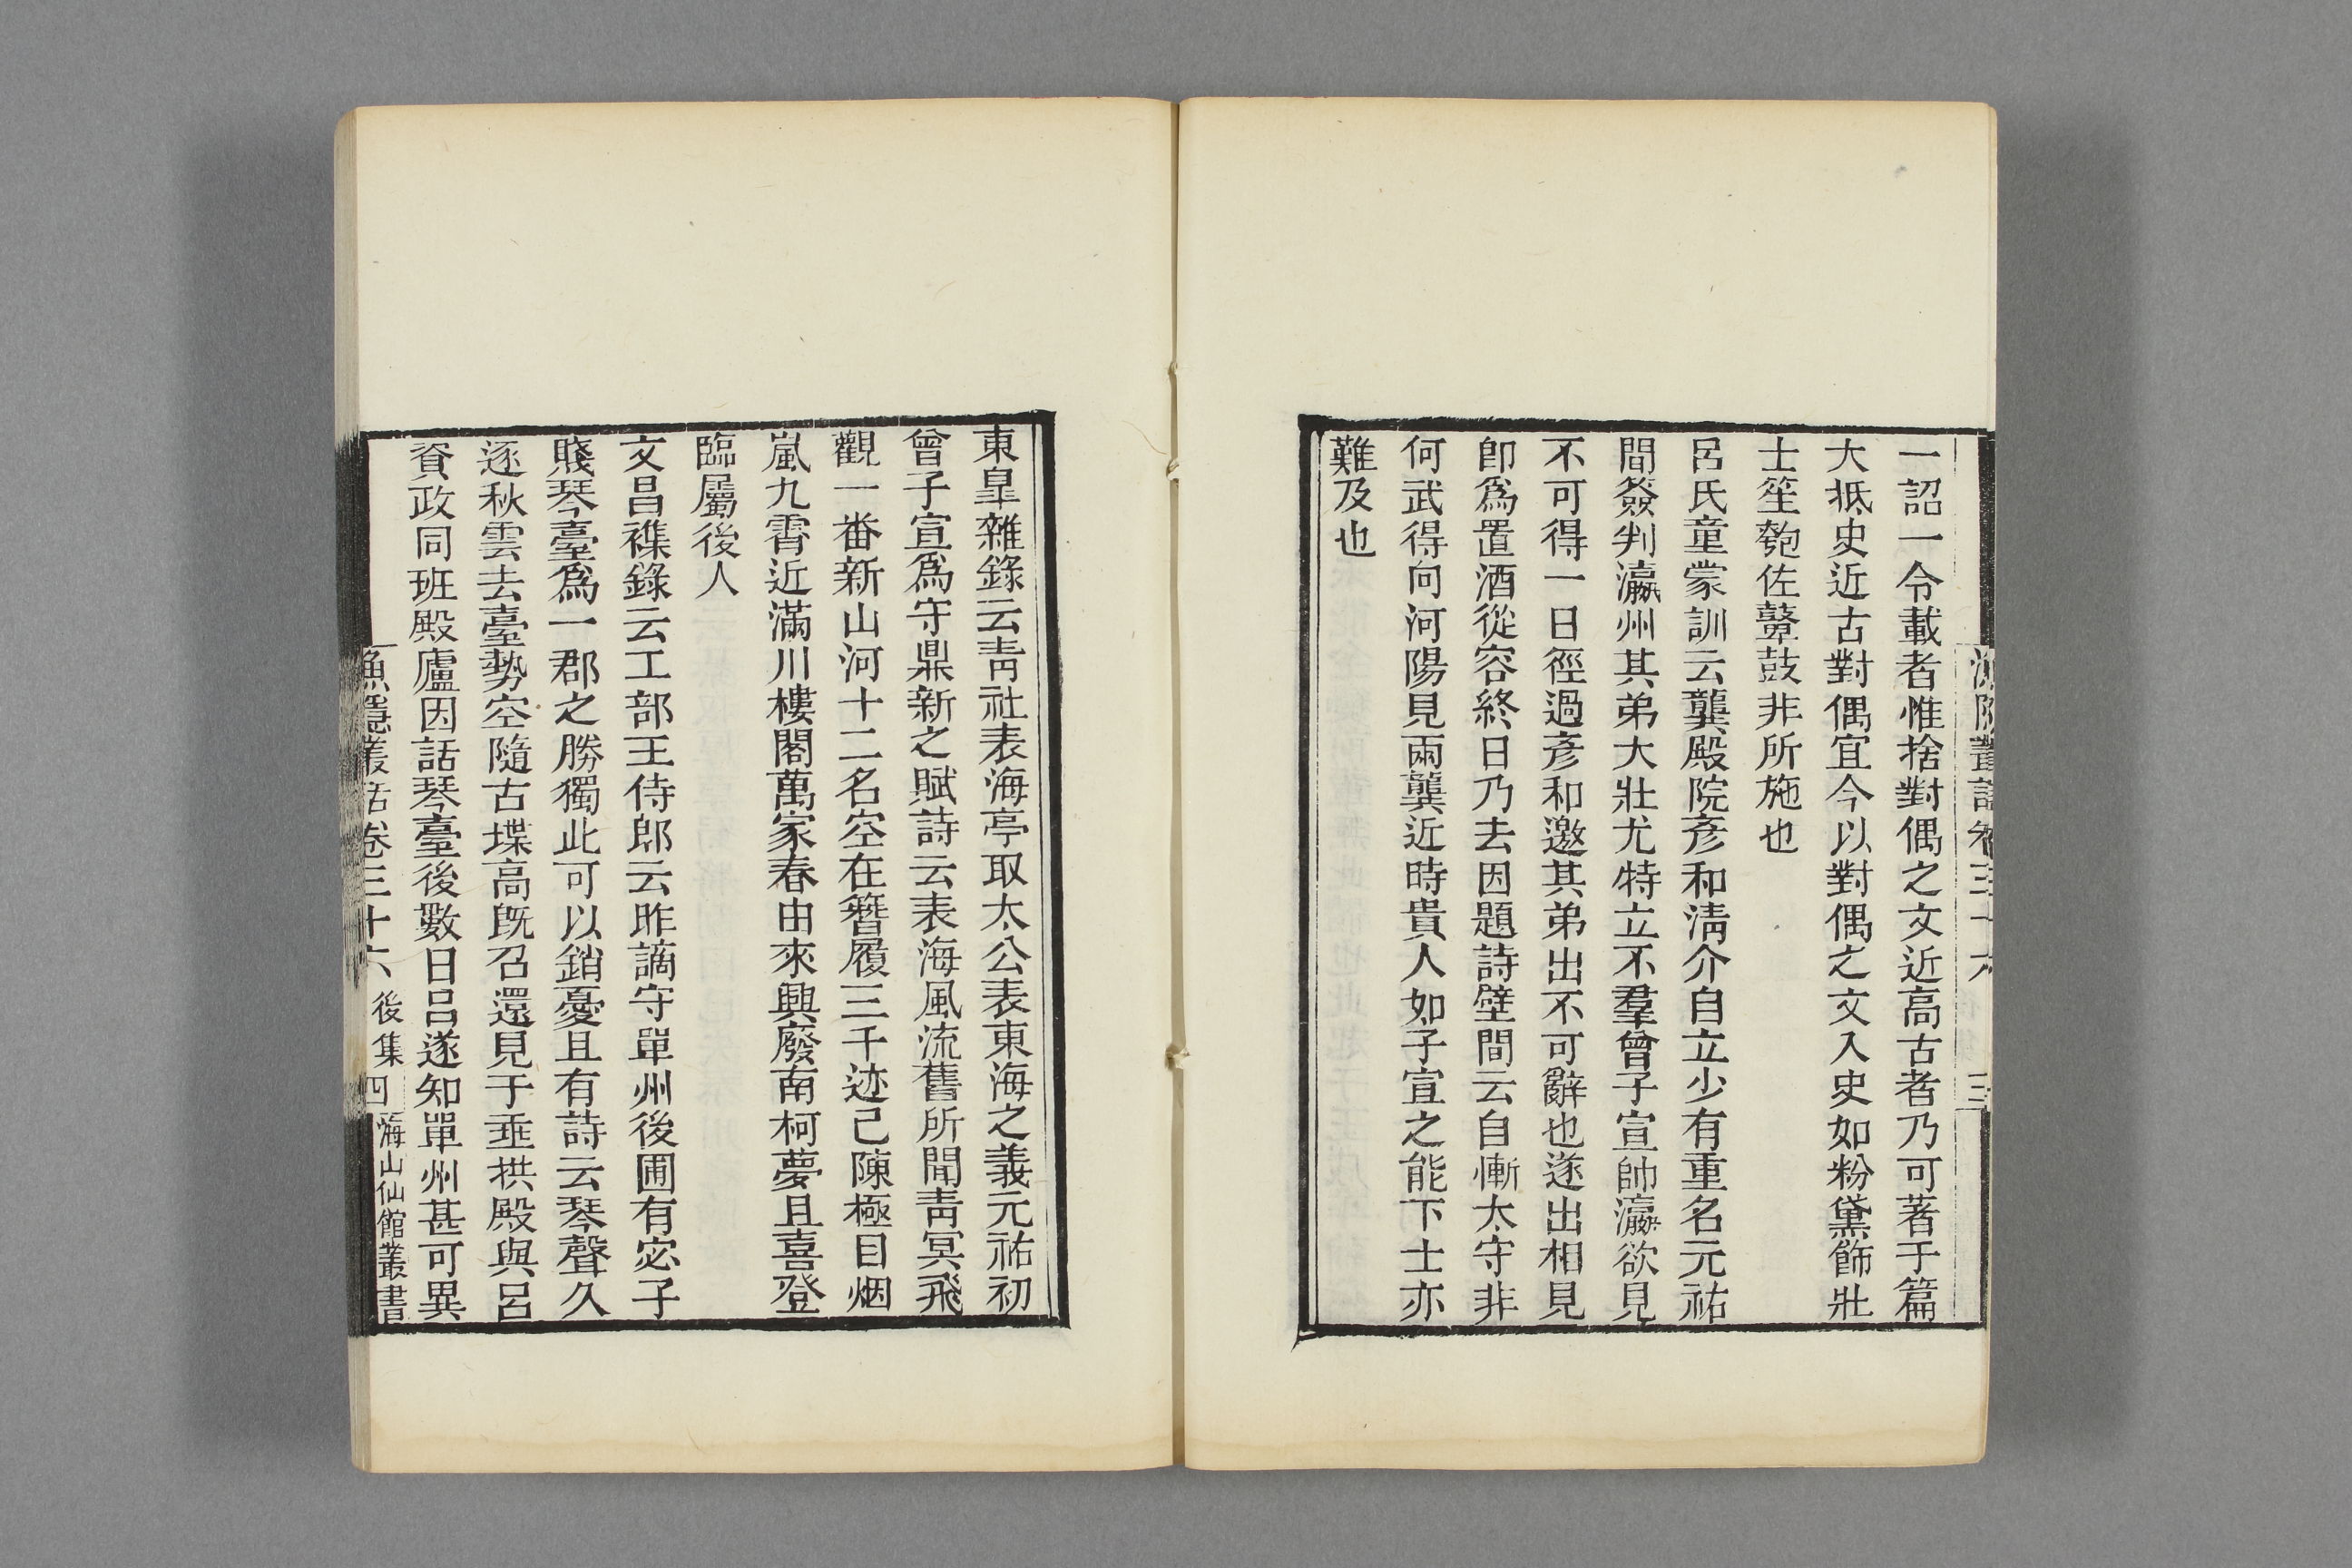 一詔一令載者惟捨對偶之文近高古者乃可著于篇
大抵史近古對偶宜今以對偶之文入史如粉黛飾壯
士笙匏佐鼙鼓非所施也
呂氏童蒙訓云龔殿院彥和淸介自立少有重名元祐
間簽判瀛州其弟大壯尤特立不羣曾子宣帥瀛欲見
不可得一日徑過彥和邀其弟出不可辭也遂出相見
卽爲置酒從容終日乃去因題詩壁間云自慚太守非
何武得向河陽見兩龔近時貴人如子宣之能下士亦
難及也
東臯雜錄云靑社表海亭取太公表東海之義元祐初
曾子宣爲守鼎新之賦詩云表海風流舊所聞靑冥飛
觀一番新山河十二名空在簪履三千迹已陳極目烟
嵐九霄近滿川樓閣萬家春由來興廢南柯夢且喜登
臨屬後人
文昌襍錄云工部王侍郎云昨謫守單州後圃有宓子
賤琴臺爲一郡之勝獨此可以銷憂且有詩云琴聲久
逐秋雲去臺勢空隨古堞高旣召還見于垂拱殿與呂
資政同班殿廬因話琴臺後數日呂遂知單州甚可異
漁隱叢話卷三十六 後集 四 海山仙館叢書